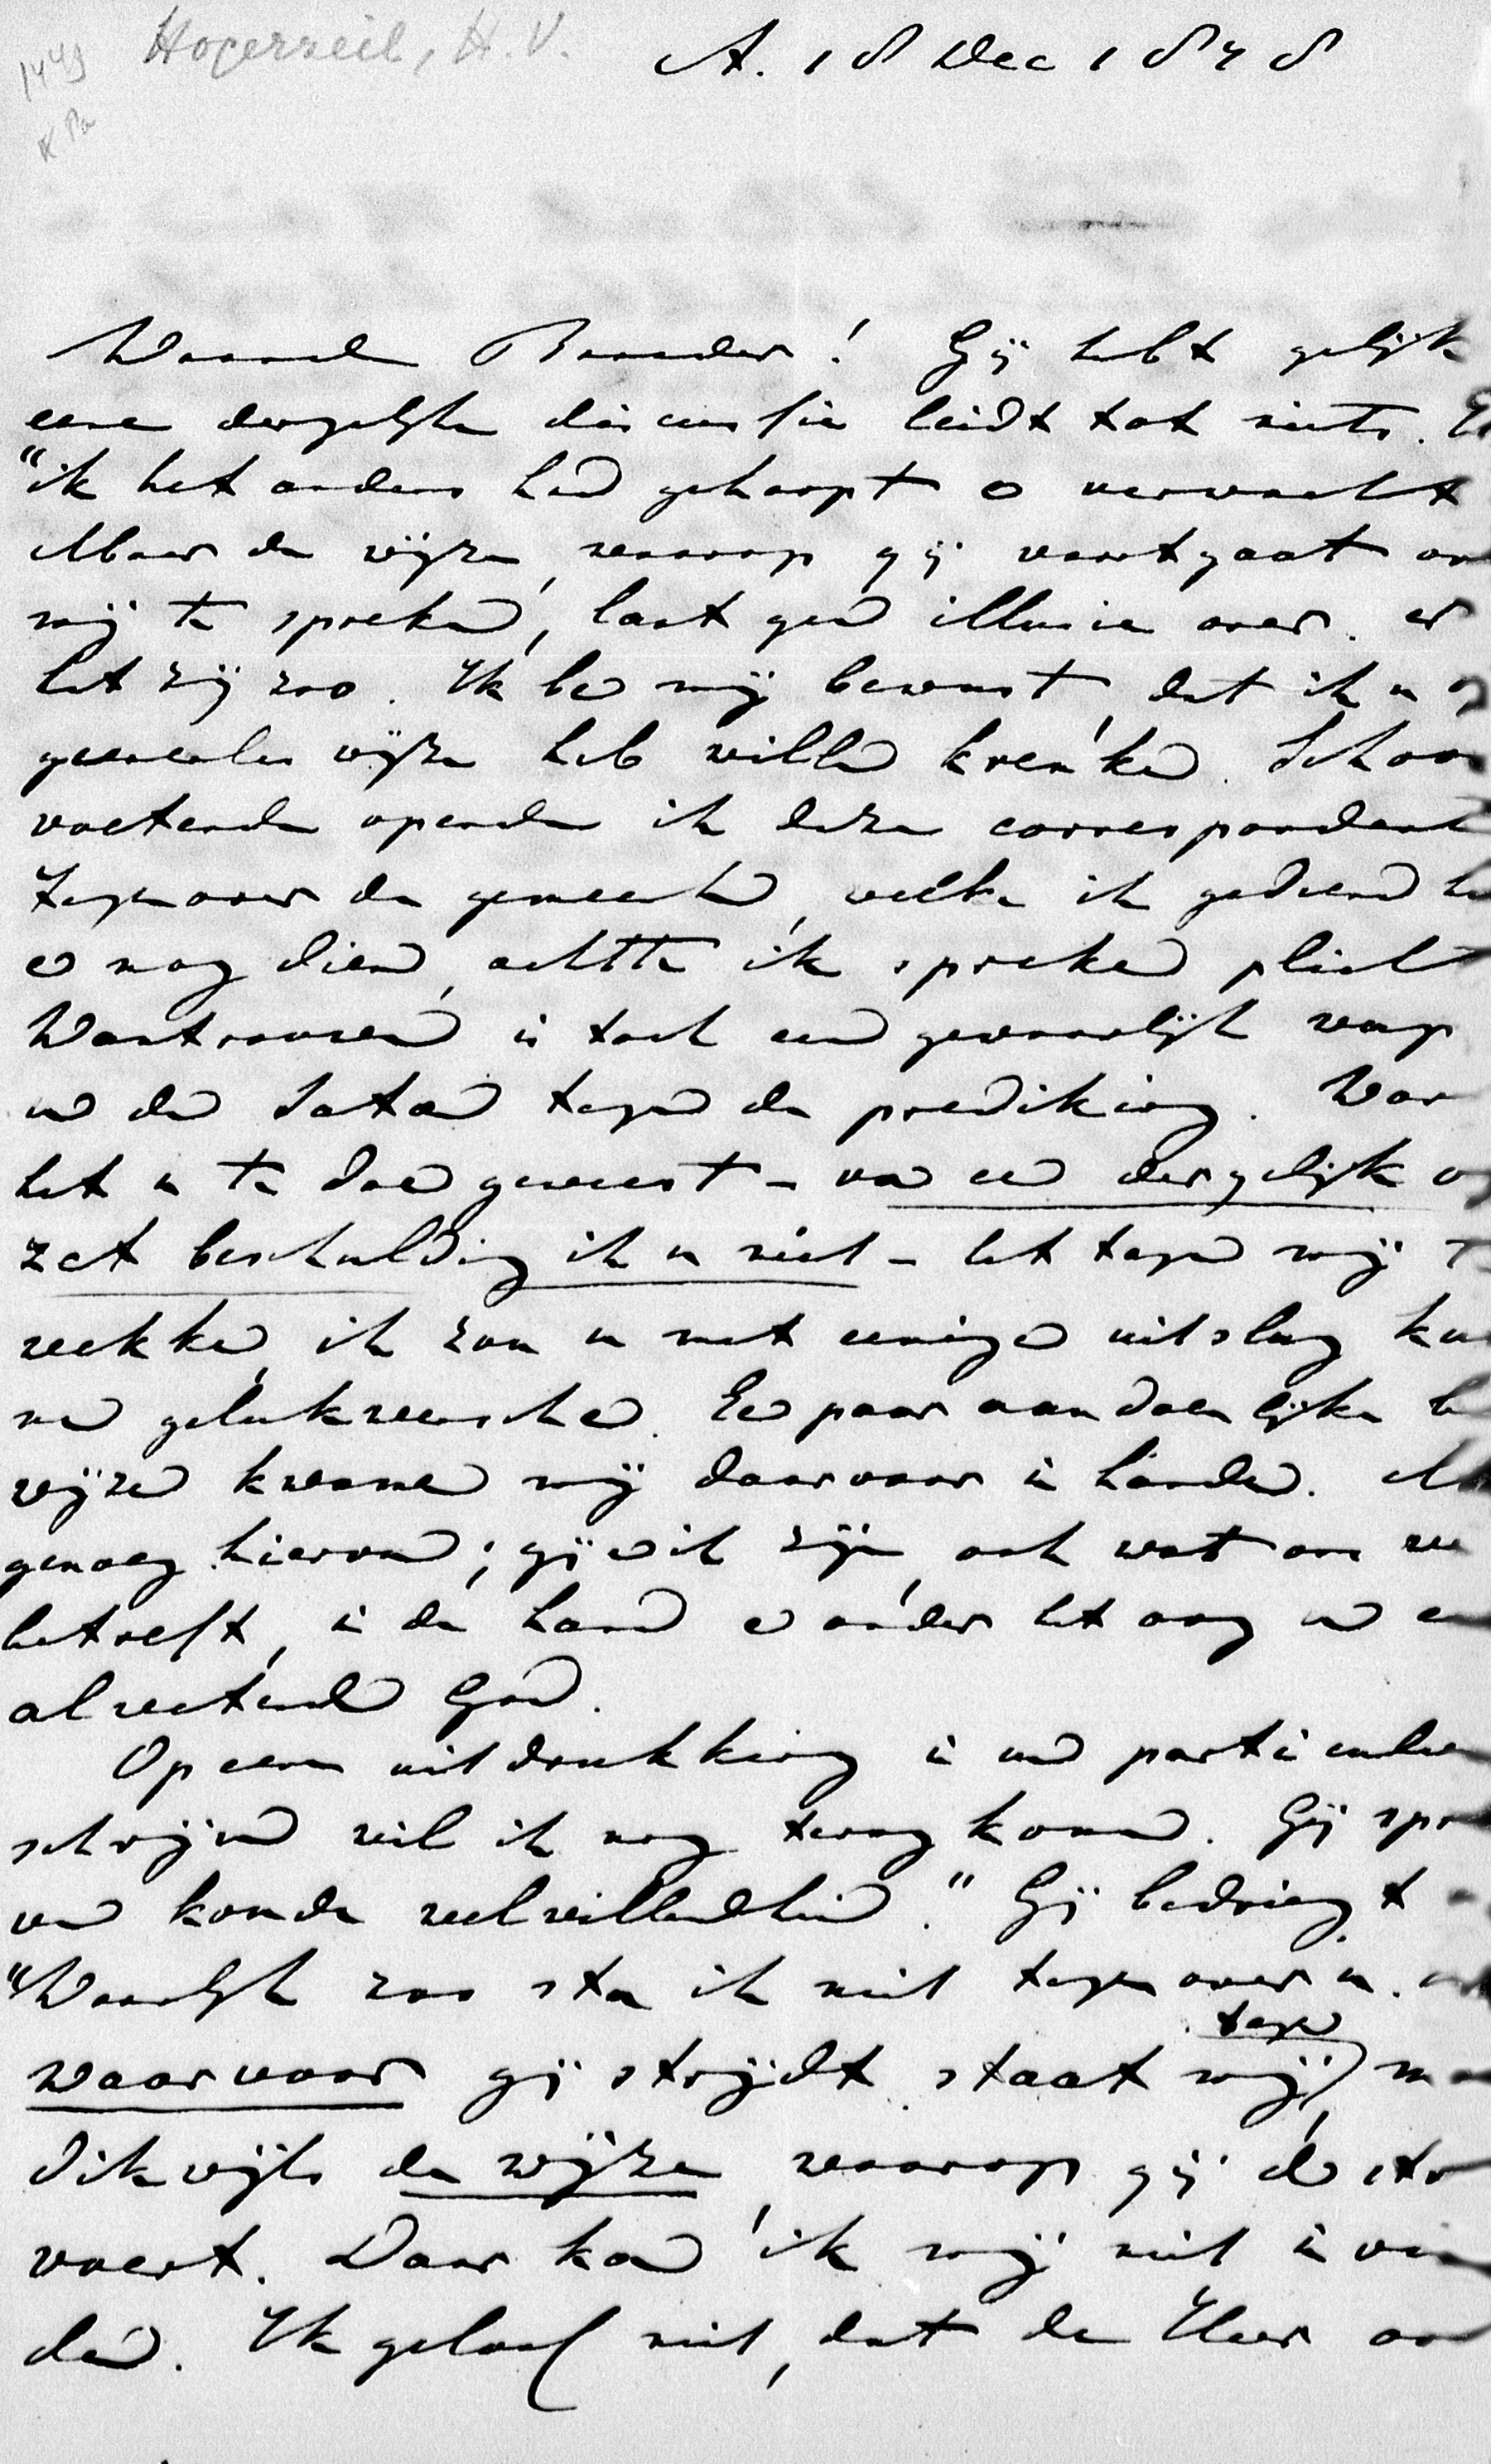 Hogerzeil, H. V.
1449
A. 18 Dec 1878
Waarde Broeder! Gij hebt gelijk
eene dergelijke discussie leidt tot niets.
"ik het anders had gehoopt en verwacht
Maar de wijze, waarop gij voortgaat
mij te spreken, laat geen illusie over. en
het zij zoo. Ik ben mij bewust, dat ik u op
geenerlei wijze heb willen krenken. Schoor
voetende opende ik deze correspondent
Tegenover de gemeente, welke ik gediend
en nog dien, achtte ik spreken plicht
Wantrouwen is toch een gevaarlijk wap
en den Satan tegen de prediking. War
het u te doen geweest – van een dergelijk op
zet beschuldig ik u niet – het tegen mij
wekken, ik zou u met eenigen uitslag kun
nen gelukwenschen. Een paar aandoenlijke be
wijzen kwamen mij daarvoor in handen.
genoeg hiervan; gij en ik zijn, ook wat ons
betreft, in de hand en onder het oog van
alwetend God.
Op eene uitdrukking in uw particulier
schrijven wil ik nog terug komen. Gij
van koude welwillendheid." Gij bedriegt
"Waarlijk zoo sta ik niet tegenover u.
tegen
waarvoor gij strijdt staat mij, m
dikwijls de wijze, waarop gij den str
voert. Daar kan ik mij niet in vin
den. Ik geloof niet, dat de Heer